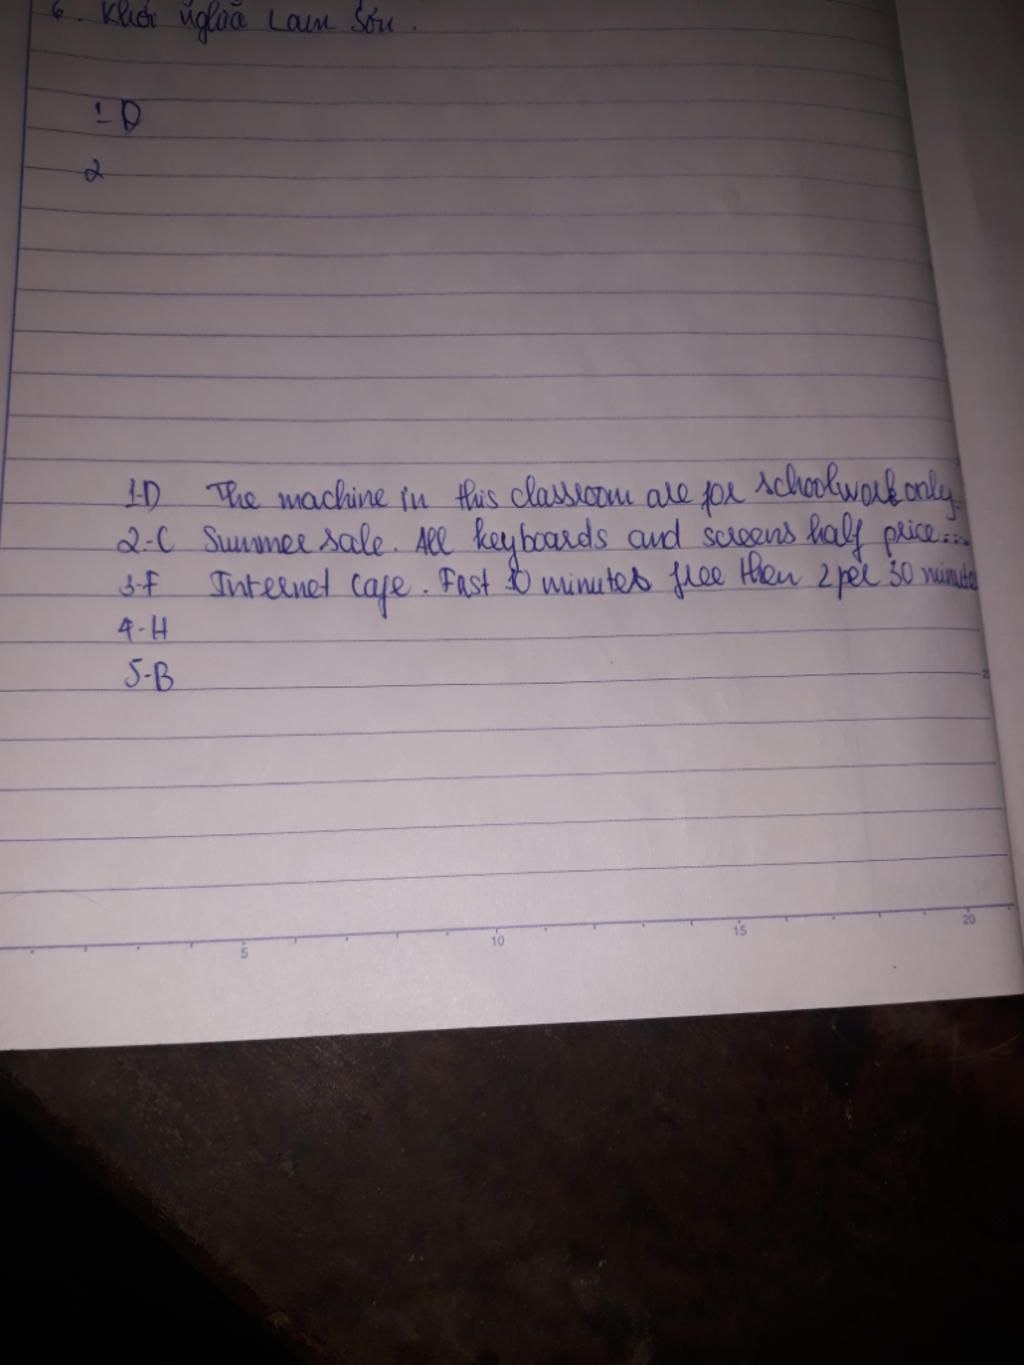 6. Khởi nghĩa Lam Sơn.
1-D
2
1-D The machine in this classroom are for schoolwork only.
2-C Summer sale. All keyboards and screens half price...
3-F Internet cafe. Fast 10 minutes free then 2 per 30 minutes
4-H
5-B
20
5 10 15 20